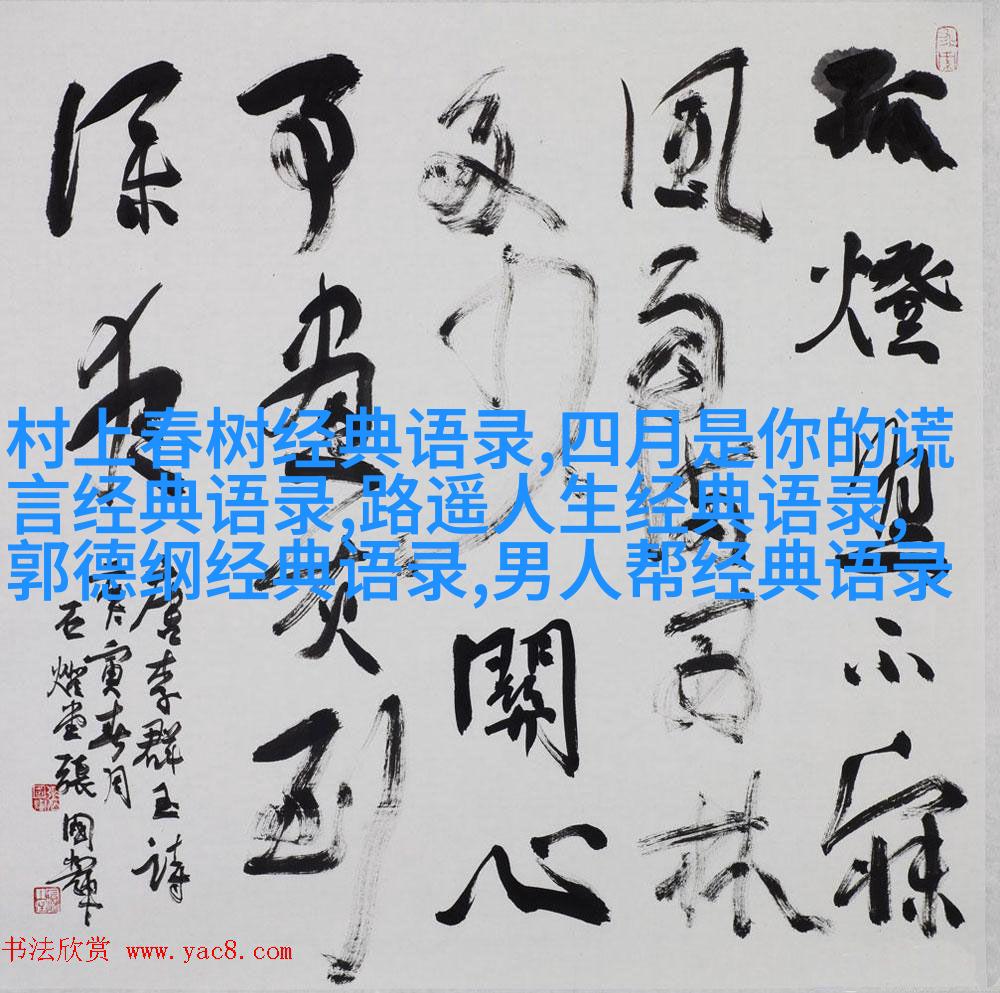 孤燈照不寐
風雨滿西林
多少關心
事書灰到
深夜
唐李群玉詩
庚寅春月
張國
村上春树经典语录,四月是你的谎
言经典语录,路遥人生经典语录,
郭德纲经典语录,男人帮经典语录
书法欣赏 www.yac8.com